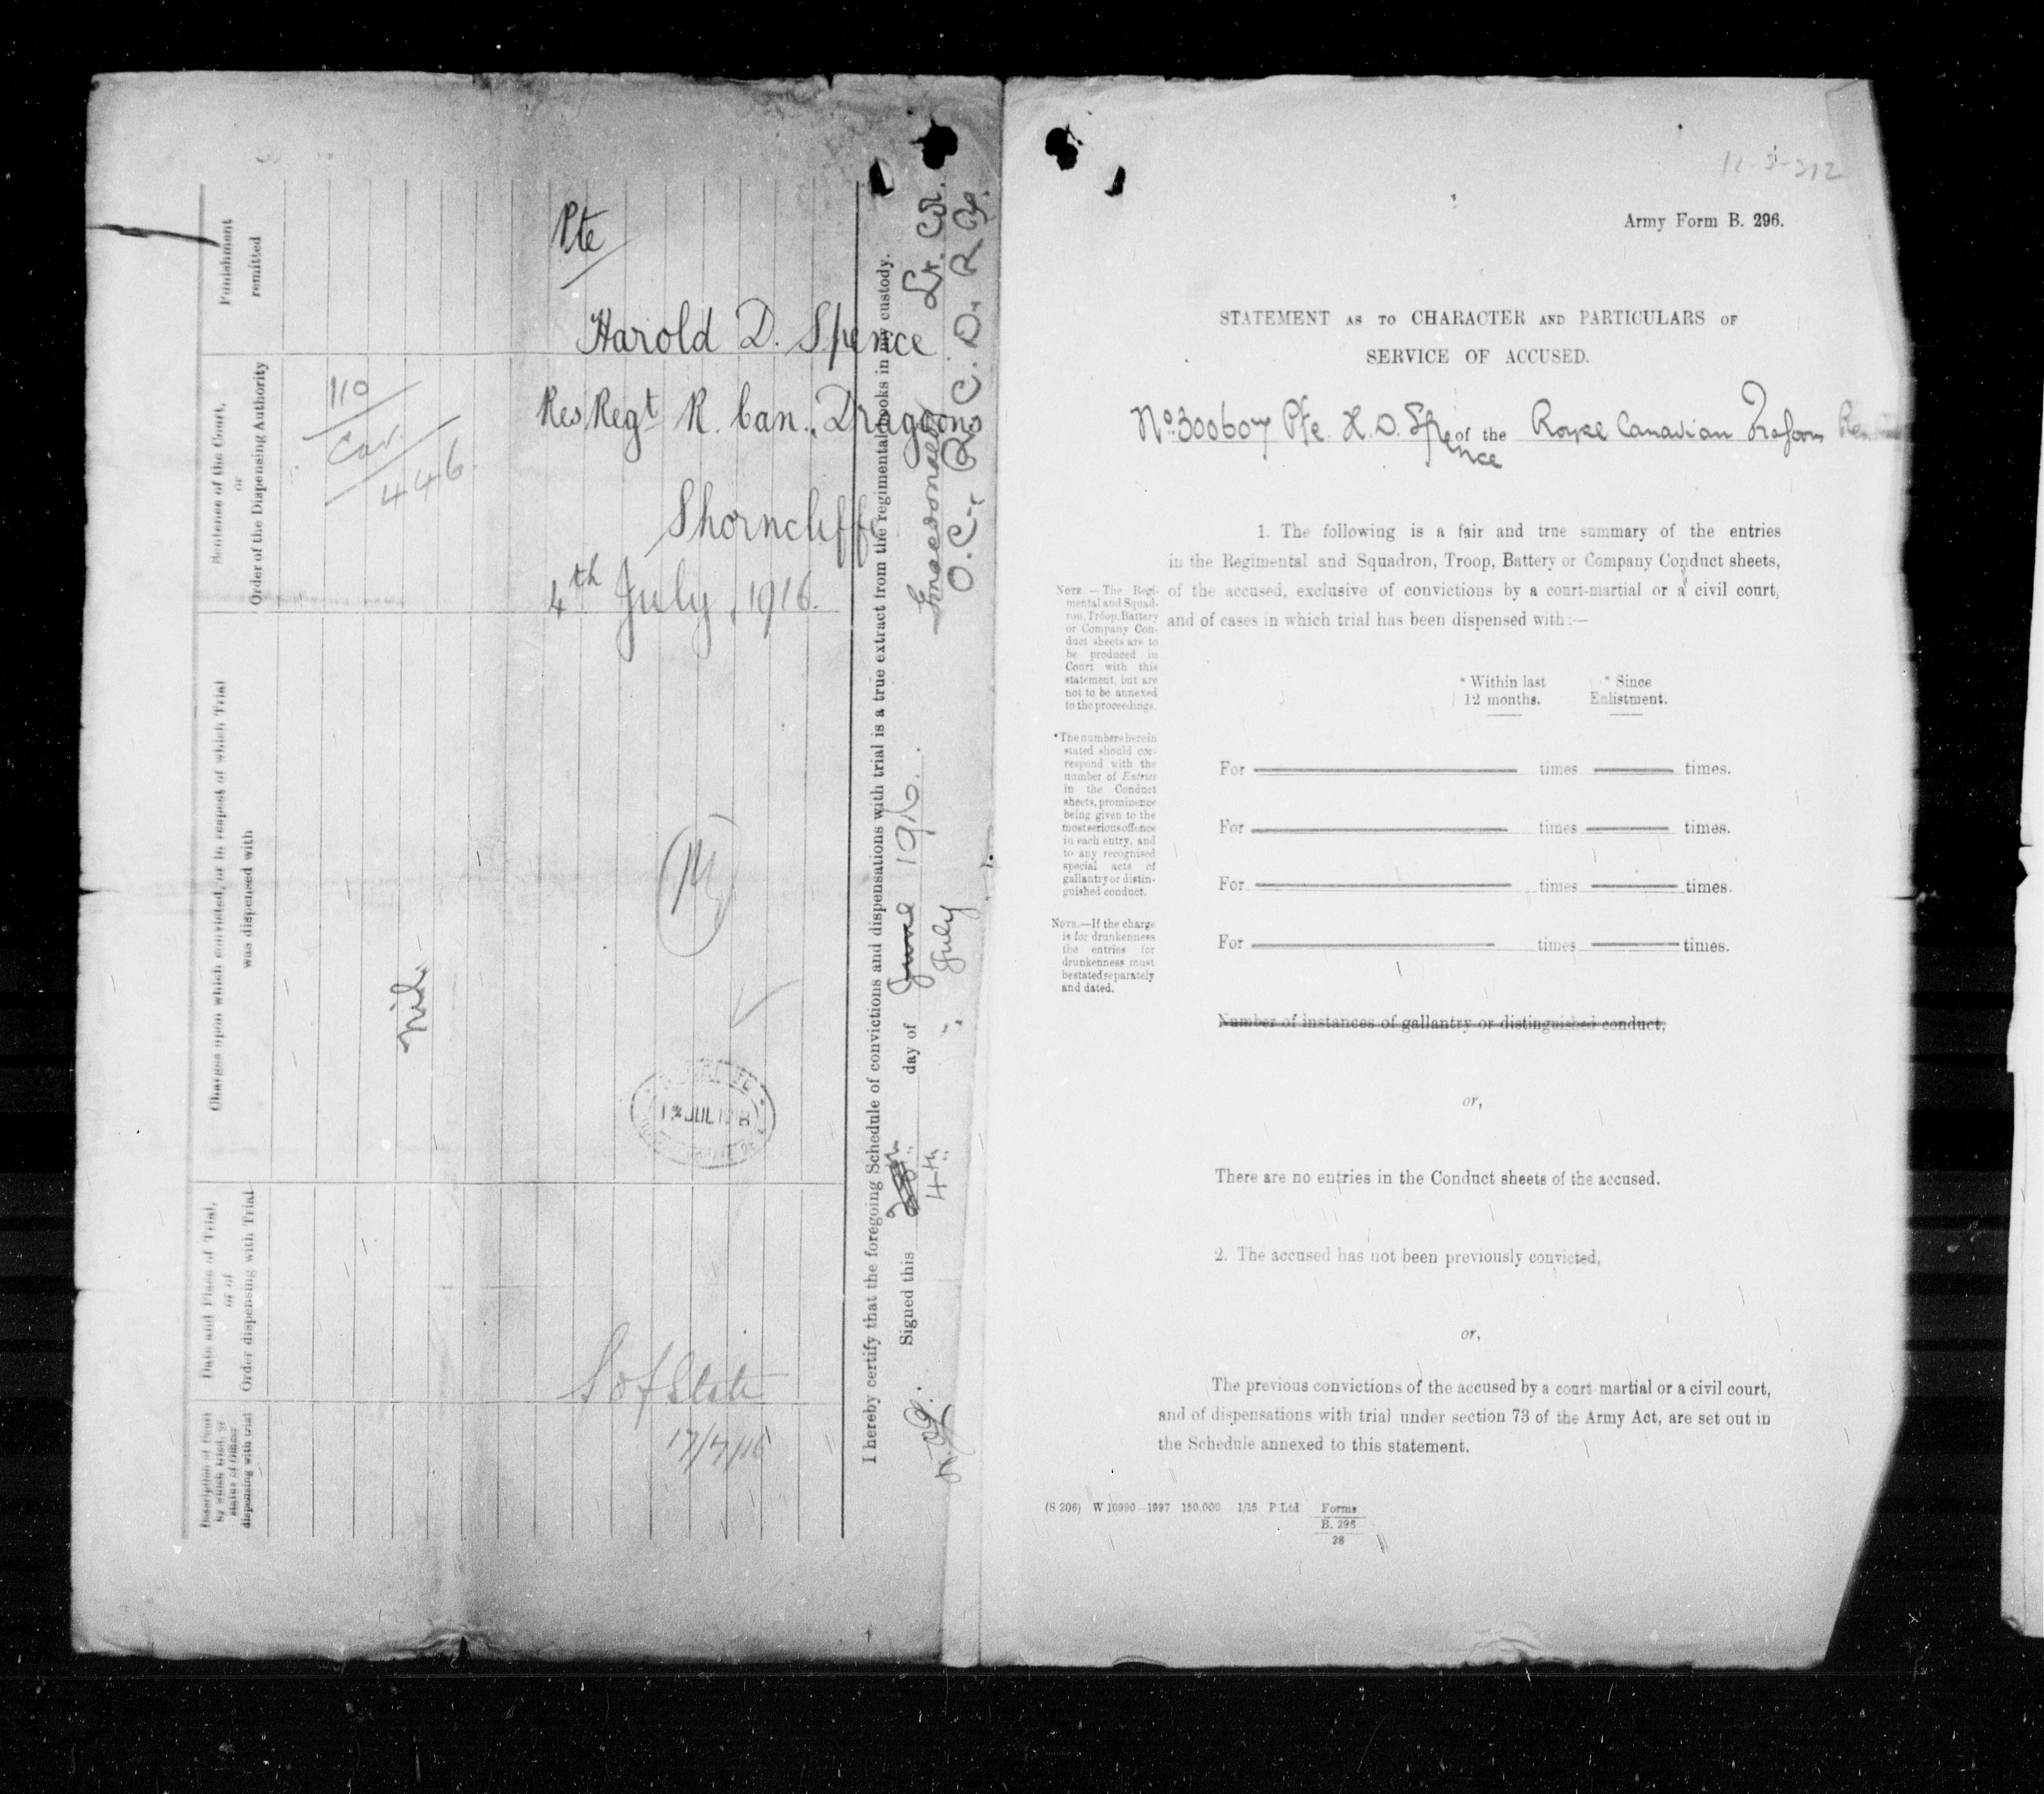 Punishment
remitted
Sentence of the Court,
or
Order of the Dispensing Authority
Charge upon which convicted, or in respect of which Trial
was dispensed with
Date and Place of Trial,
or of
Order dispensing with Trial
Description of Court
by which tried, or
status of Officer
dispensing with trial
110
Cav.
446
Nil.
Pte
Harold D. Spence
Res Regt R. Can. Dragoons
Shorncliffe
4th July, 1916.
S of State
17/7/16
I hereby certify that the foregoing Schedule of convictions and dispensations with trial is a true extract from the regimental books in my custody.
Signed this day of June 1916.
4th " July
Lt. Col.
O.C. R.C.D. R
12-5-212
Army Form B. 296.
STATEMENT AS TO CHARACTER AND PARTICULARS OF
SERVICE OF ACCUSED.
No 300607 Pte. H. D. Spence of the Royal Canadian Dragoons
1. The following is a fair and true summary of the entries
in the Regimental and Squadron, Troop, Battery or Company Conduct sheets,
of the accused, exclusive of convictions by a court-martial or a civil court,
and of cases in which trial has been dispensed with:—
NOTE.—The Regi-
mental and Squad-
ron, Troop, Battery
or Company Con-
duct sheets are to
be produced in
Court with this
statement, but are
not to be annexed
to the proceedings.
*The numbers herein
stated should cor-
respond with the
number of Entries
in the Conduct
sheets, prominence
being given to the
most serious offence
in each entry, and
to any recognised
special acts of
gallantry or distin-
guished conduct.
NOTE.—If the charge
is for drunkenness
the entries for
drunkenness must
be stated separately
and dated.
* Within last * Since
12 months. Enlistment.
For times times.
For times times.
For times times.
For times times.
Number of instances of gallantry or distinguished conduct,
or,
There are no entries in the Conduct sheets of the accused.
2. The accused has not been previously convicted,
or,
The previous convictions of the accused by a court martial or a civil court,
and of dispensations with trial under section 73 of the Army Act, are set out in
the Schedule annexed to this statement.
(S 206) W 10990—1997 150,000 1/15 P Ltd Forms
B. 296
28